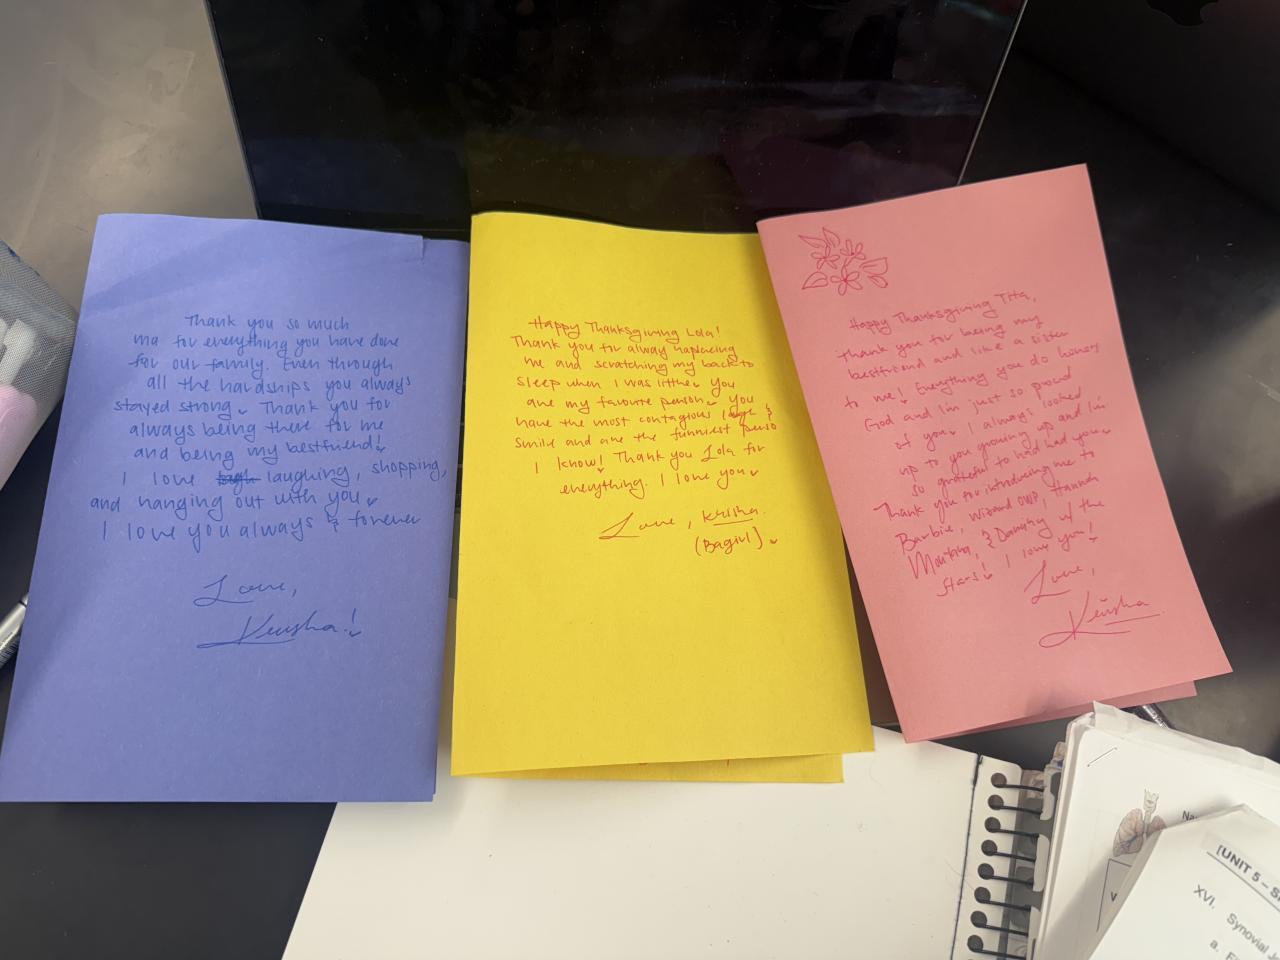 Thank you so much
ma for everything you have done
for our family. Even through
all the hardships you always
stayed strong. Thank you for
always being there for me
and being my bestfriend!
I love laughing, shopping,
and hanging out with you
I love you always & forever
Love,
Keusha!
Happy Thanksgiving Lola!
Thank you for always
me and scratching my back to
sleep when I was You
are my favourite person. You
have the most contagious &
smile and are the funniest
I know! Thank you Lola for
everything. I love you
Love,
Happy Thanksgiving Tita,
thank you for being my
bestfriend and like a sister
to me! Everything you do honors
God and I'm just so proud
of you. I always looked
up to you growing up and I'm
so grateful to had had you.
Thank you for introducing me to
Barbie, Wizard OWP, Hannah
Montana, & Dancing w/ the
stars! I love you!
Love,
Keusha
[UNIT 5 – S
XVI. Synovial J
a.